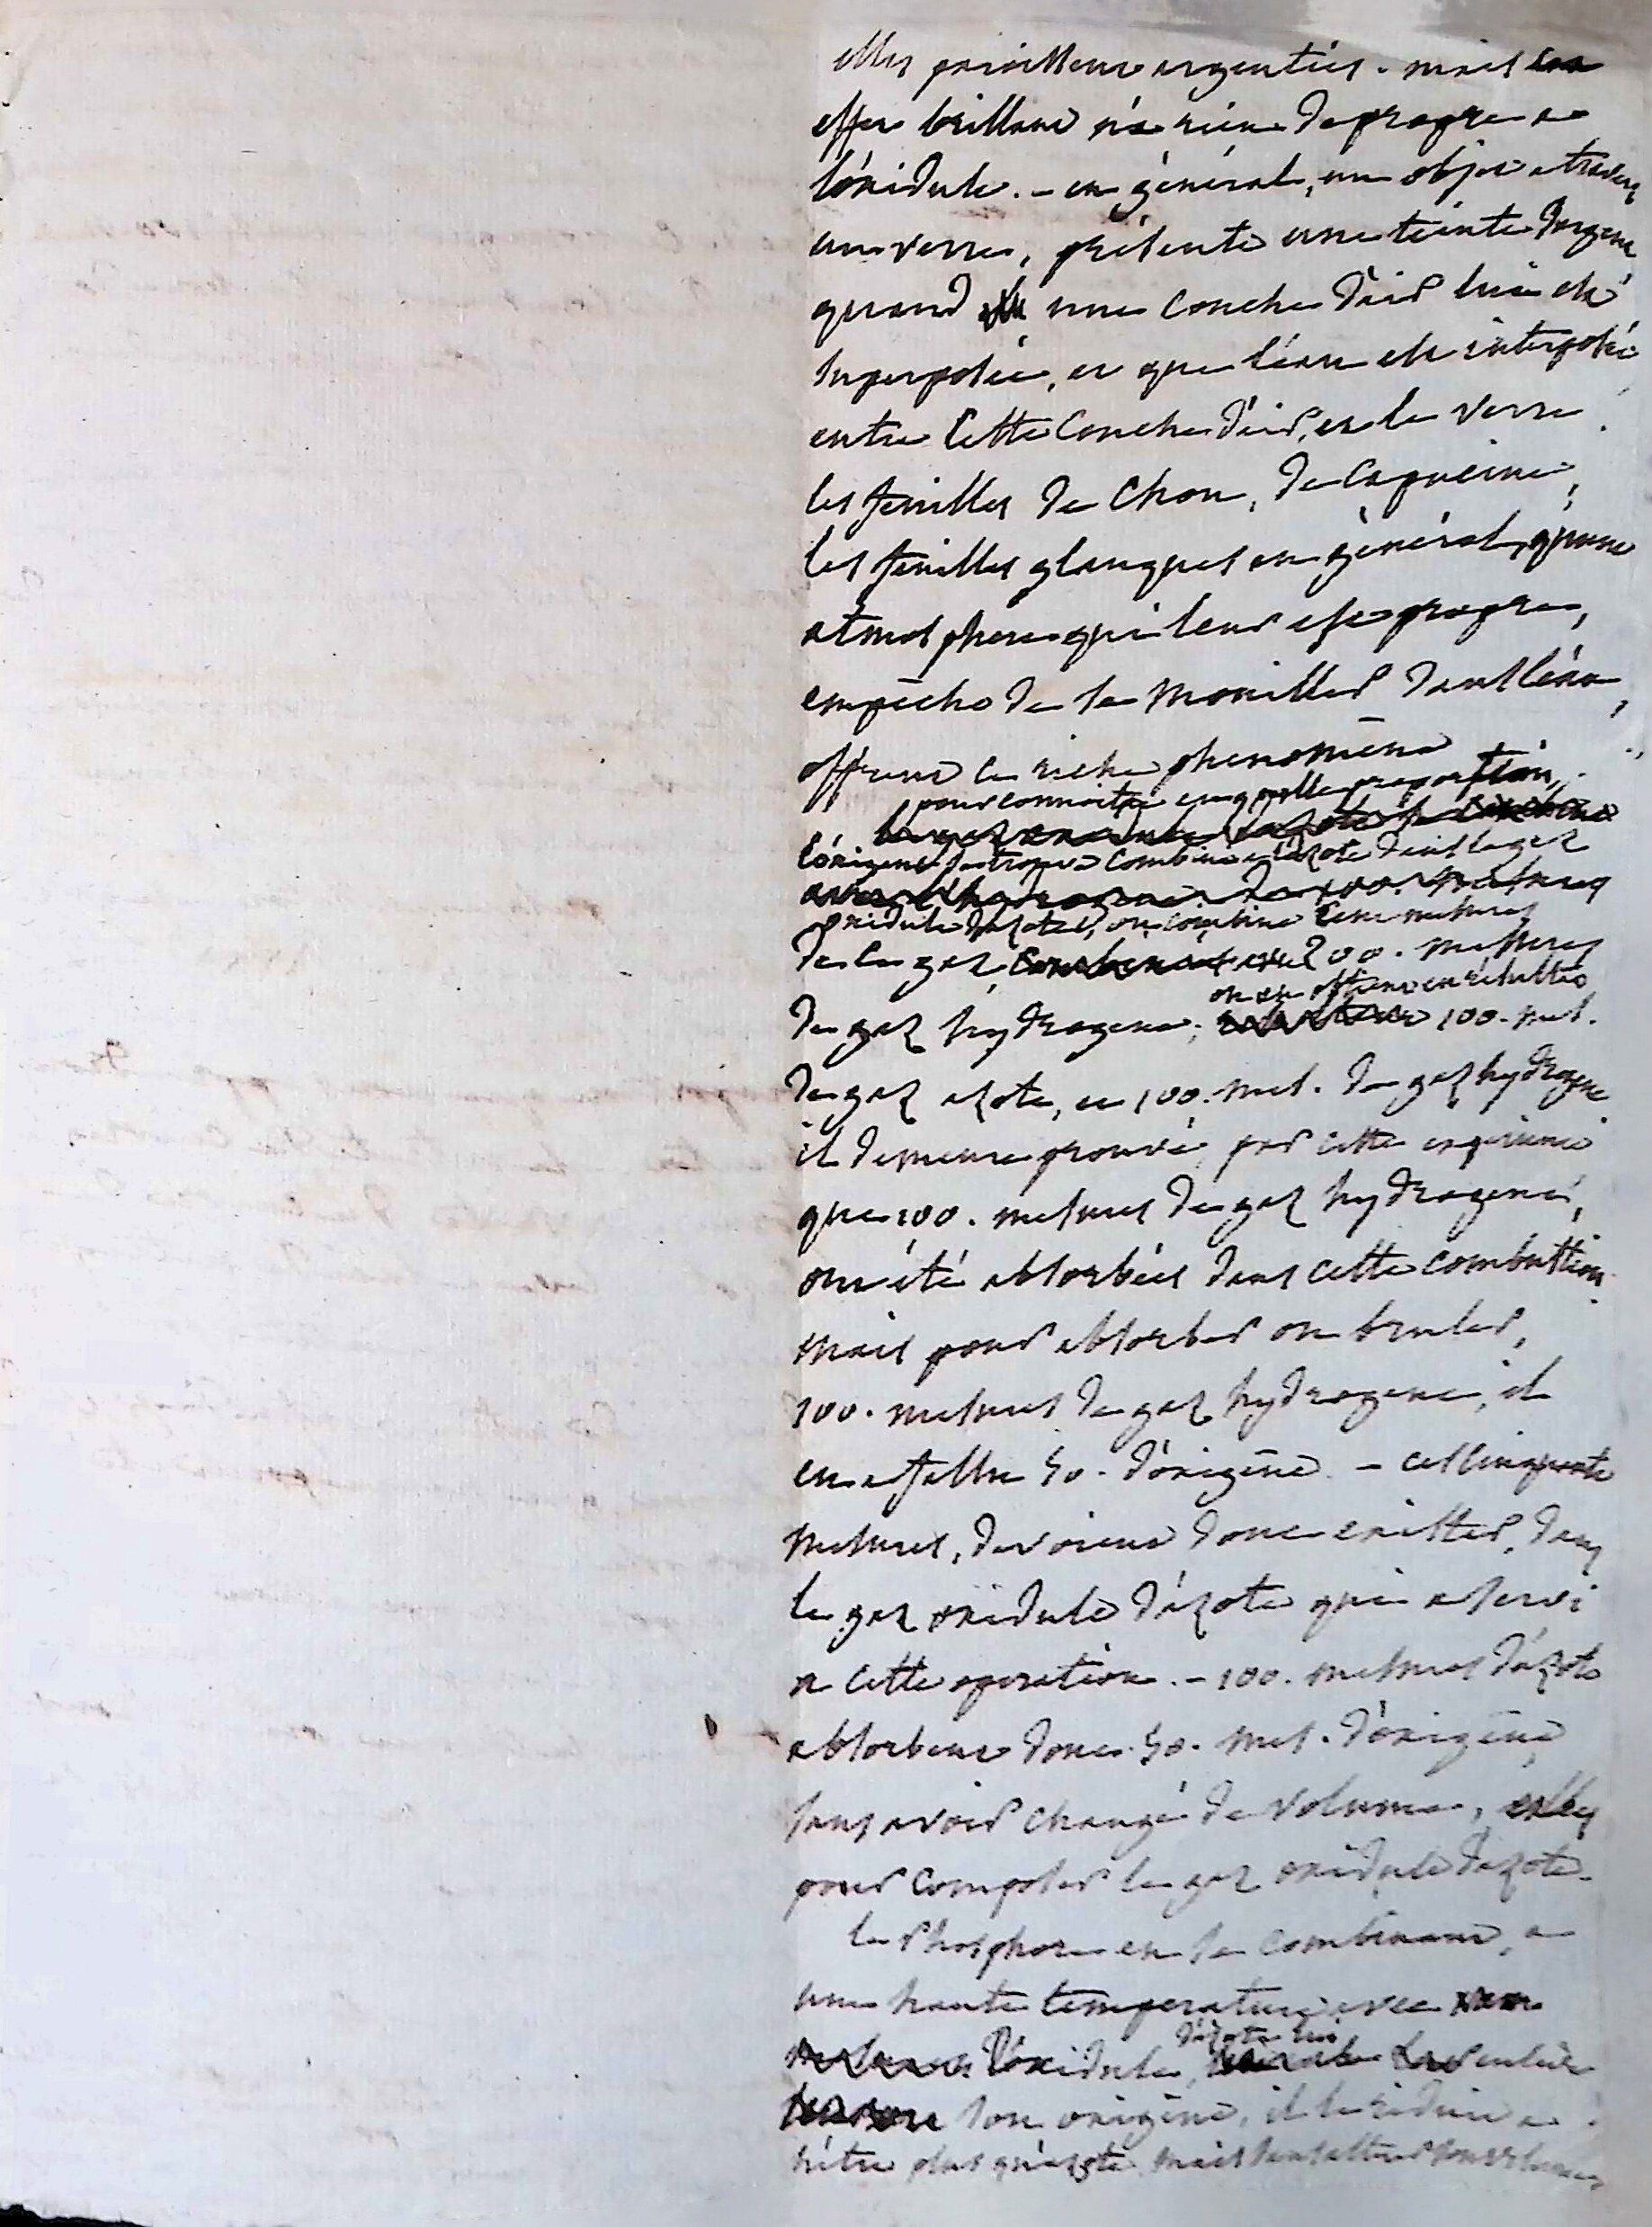 elles paroissent argentées. mais cet
effet brillant n'a rien de propre a
l'oxidule. - en général, un objet a travers
un verre, présente une teinte d'argent
quand une couche d'air lui est
superposée, et que l'eau est interposée
entre cette couche d'air, et le verre.
les feuilles de chou, de capucine,
les feuilles glauques en général, qu'une
atmosphere qui leur est propre,
empêche de se mouiller dans l'eau,
offrent ce riche phenomène
pour connoitre en quelle proportion,
l'oxigene se trouve combiné a l'azote dans le gaz
oxidule d'azote, on combine cent mesures
de ce gaz, 200. mesures
on en obtient en resultat
de gaz hydrogene; 100. mes.
de gaz azote, et 100. mes. de gaz hydrogene
il demeure prouvé, par cette experience
que 100. mesures de gaz hydrogene,
ont été absorbées dans cette combustion.
mais pour absorber ou bruler,
100. mesures de gaz hydrogene, il
en a fallu 50. d'oxigène. - ces cinquante
mesures, devoient donc exister, dans
le gaz oxidule d'azote qui a servi
a cette operation. - 100. mesures d'azote
absorbent donc 50. mes. d'oxigène
sans avoir changé de volume,
pour composer le gaz oxidule d'azote.
le Phosphore en se combinant, a
une haute temperature avec
d'azote lui
l'oxidule, enleve
son oxigène, il le reduit a
n'être plus qu'azote, mais sans alterer son volume,